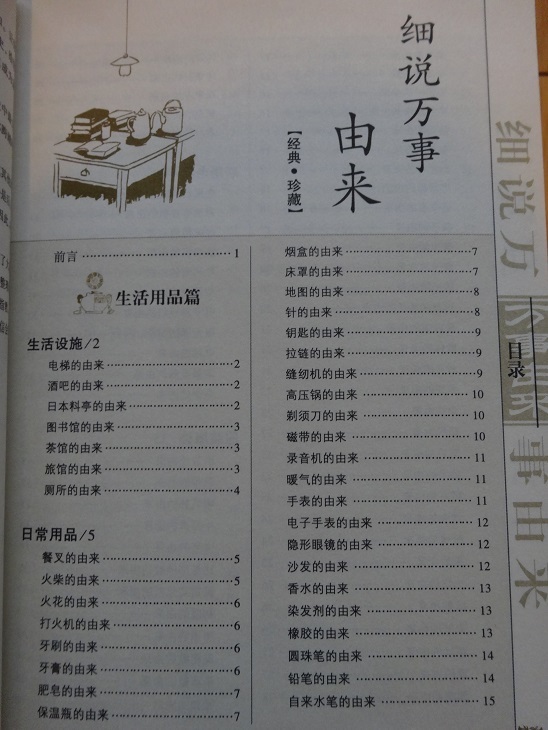 细说万事
由来
【经典·珍藏】
前言 1
生活用品篇
生活设施/2
电梯的由来 2
酒吧的由来 2
日本料亭的由来 2
图书馆的由来 3
茶馆的由来 3
旅馆的由来 3
厕所的由来 4
日常用品/5
餐叉的由来 5
火柴的由来 5
火花的由来 6
打火机的由来 6
牙刷的由来 6
牙膏的由来 6
肥皂的由来 7
保温瓶的由来 7
烟盒的由来 7
床罩的由来 7
地图的由来 8
针的由来 8
钥匙的由来 9
拉链的由来 9
缝纫机的由来 9
高压锅的由来 10
剃须刀的由来 10
磁带的由来 10
录音机的由来 11
暖气的由来 11
手表的由来 11
电子手表的由来 12
隐形眼镜的由来 12
沙发的由来 12
香水的由来 13
染发剂的由来 13
橡胶的由来 13
圆珠笔的由来 14
铅笔的由来 14
自来水笔的由来 15
细说万
事由来
目录